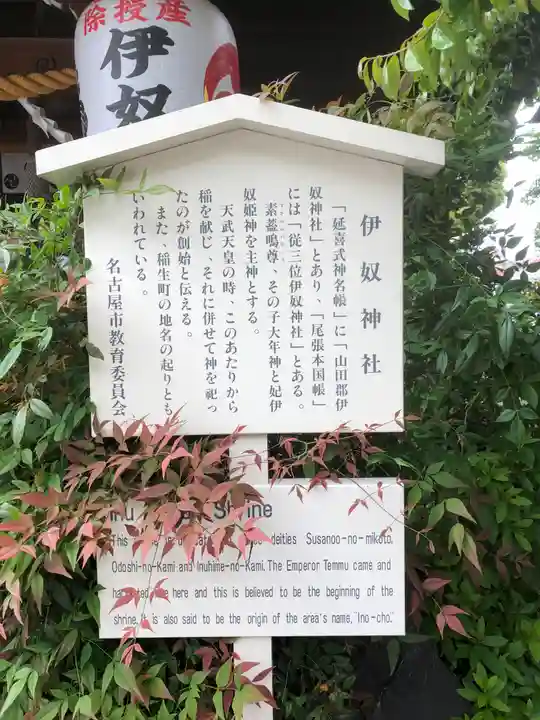 除授産
伊奴
伊奴神社
「延喜式神名帳」に「山田郡伊
奴神社」とあり、「尾張本国帳」
には「従三位伊奴神社」とある。
素盞嗚尊、その子大年神と妃伊
奴姫神を主神とする。
天武天皇の時、このあたりから
稲を献じ、それに併せて神を祀っ
たのが創始と伝える。
また、稲生町の地名の起りとも
いわれている。
名古屋市教育委員会
Inu Shrine
This deities Susanoo-no-mikoto,
Odoshi-no-Kami and Inuhime-no-Kami. The Emperor Temmu came and
here and this is believed to be the beginning of the
shrine. It is also said to be the origin of the area's name, "Ino-cho."